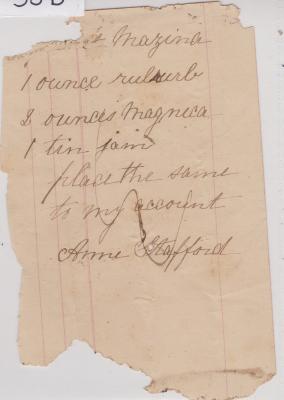 Mazina
1 ounce ruburb
3 ounces Magneca
1 tin jam
place the same
to my account
Anne Stafford